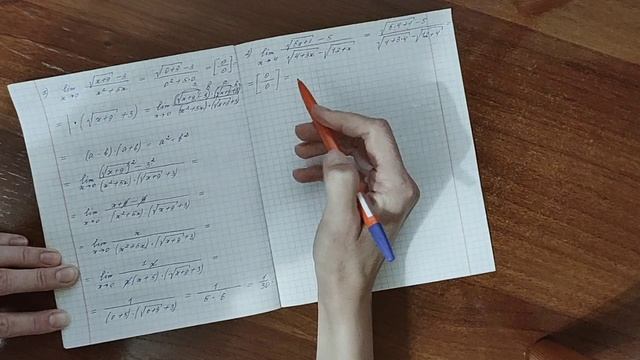 3) lim x→0 (√(x+9) − 3)/(x² + 5x) = (√(0+9) − 3)/(0² + 5·0) = [0/0] =
= |·(√(x+9) + 3)| = lim x→0 ((√(x+9) − 3)·(√(x+9) + 3))/((x² + 5x)·(√(x+9) + 3)) =
(a − b)·(a + b) = a² − b²
= lim x→0 ((√(x+9))² − 3²)/((x² + 5x)·(√(x+9) + 3)) =
= lim x→0 (x + 9 − 9)/((x² + 5x)·(√(x+9) + 3)) =
= lim x→0 x/((x² + 5x)·(√(x+9) + 3)) =
= lim x→0 1·x/(x(x + 5)·(√(x+9) + 3)) =
= 1/((0 + 5)·(√(0+9) + 3)) = 1/(5·6) = 1/30
lim x→4 (√(6x+1) − 5)/(√(4+3x) − √(12+x)) = (√(6·4+1) − 5)/(√(4+3·4) − √(12+4)) =
= [0/0] =